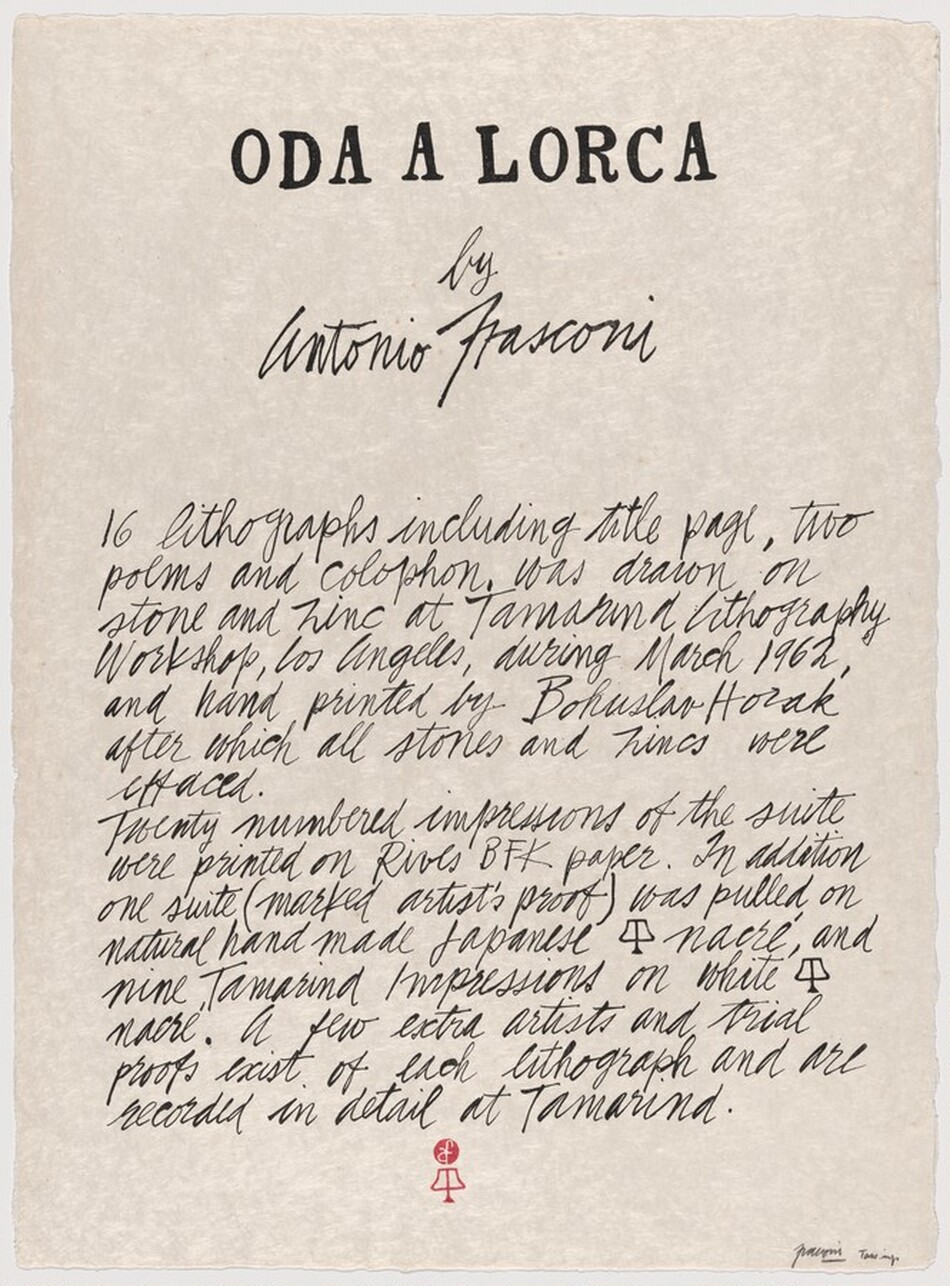 ODA A LORCA
by
Antonio Frasconi
16 lithographs including title page, two
poems and colophon, was drawn on
stone and zinc at Tamarind Lithography
Workshop, Los Angeles, during March 1962,
and hand printed by Bohuslav Horak
after which all stones and zincs were
effaced.
Twenty numbered impressions of the suite
were printed on Rives BFK paper. In addition
one suite (marked artist's proof) was pulled on
natural hand made Japanese nacré, and
nine Tamarind Impressions on white
nacré. A few extra artists and trial
proofs exist of each lithograph and are
recorded in detail at Tamarind.
Frasconi